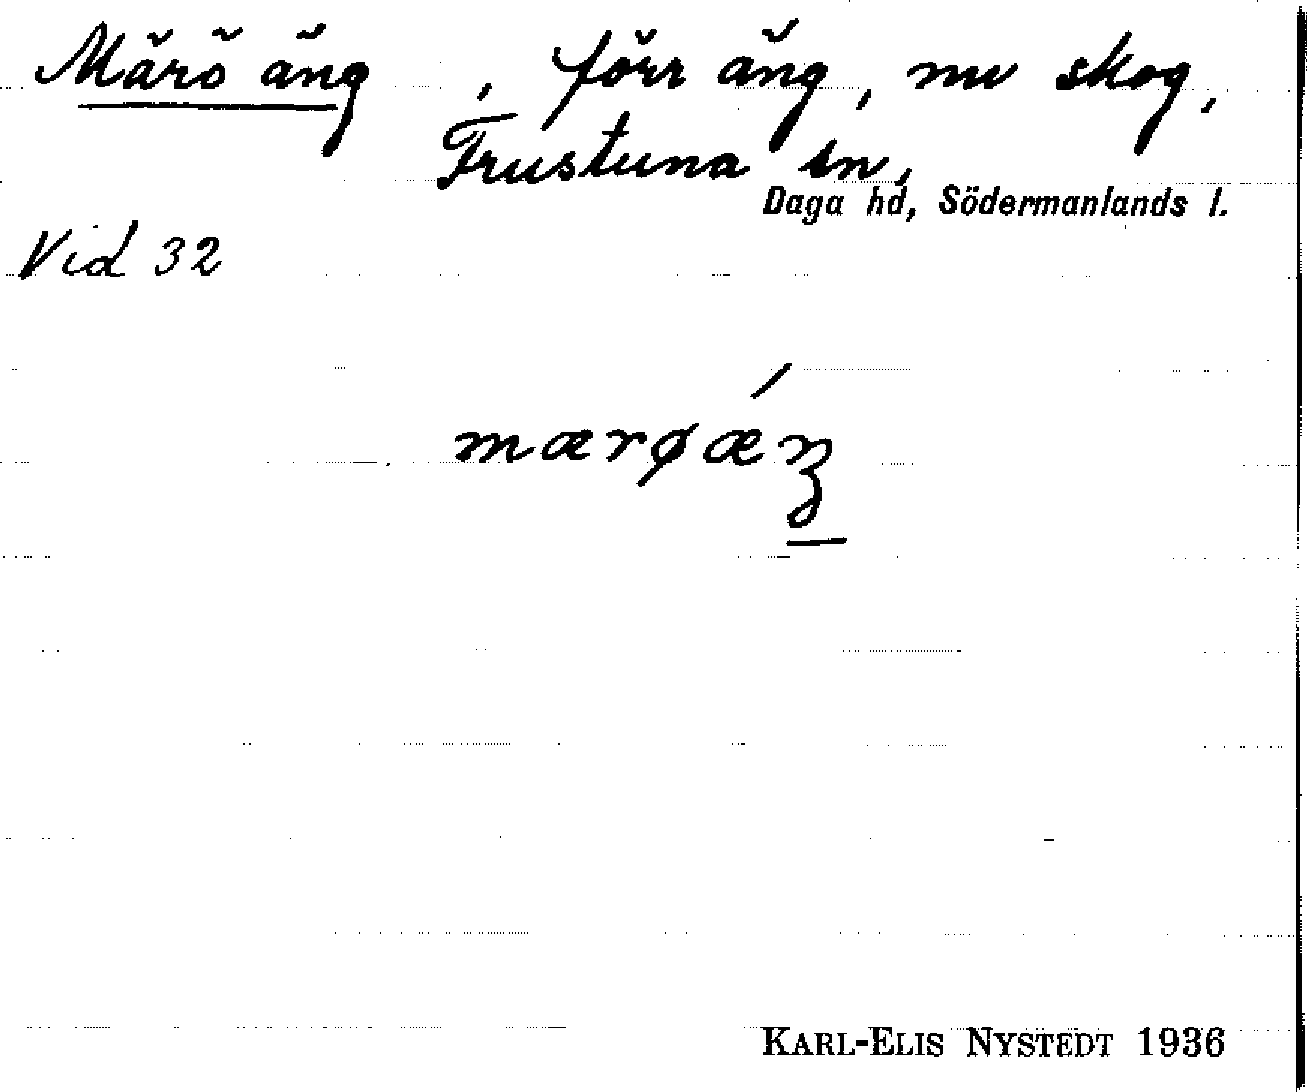 Märö äng , förr äng, nu skog,
Frustuna sn,
Daga hd, Södermanlands l.
Vid 32
mærøǽŋ
KARL-ELIS NYSTEDT 1936